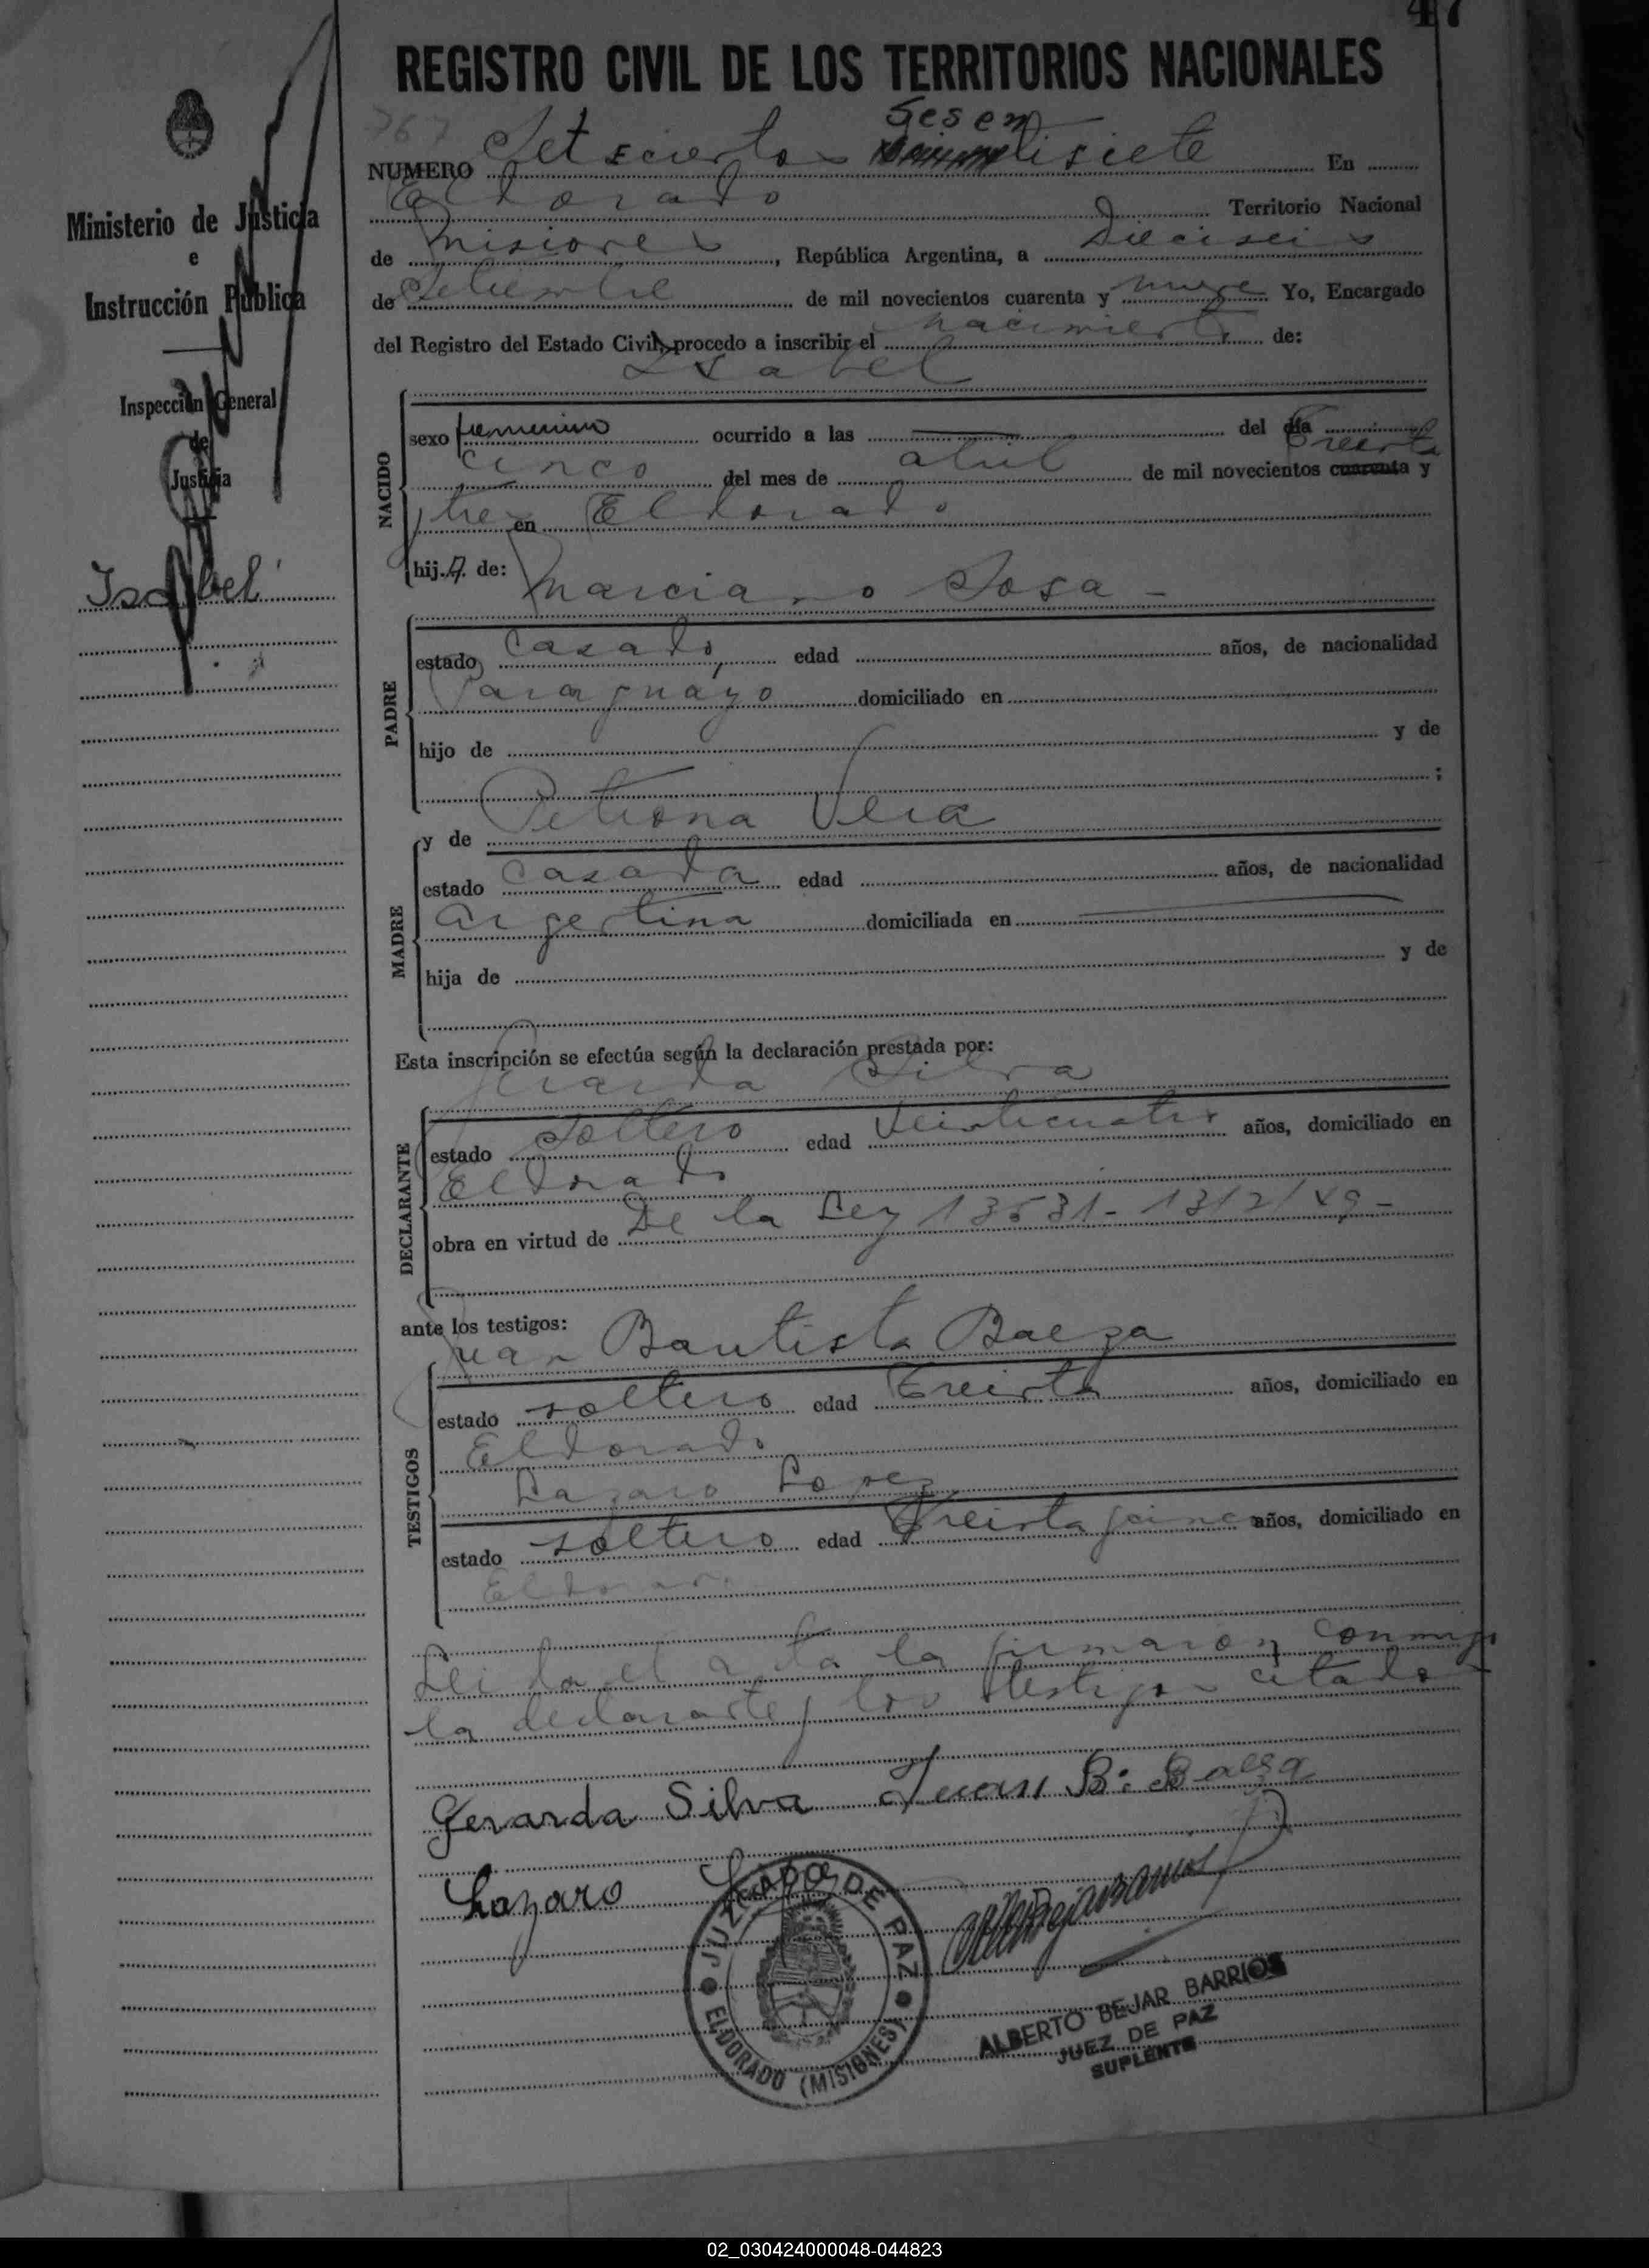 47
REGISTRO CIVIL DE LOS TERRITORIOS NACIONALES
767
Sesen
NUMERO Setscientos tisiete En
Eldorado Territorio Nacional
de Misiones, República Argentina, a Dieciseis
de Setiembre de mil novecientos cuarenta y nueve Yo, Encargado
del Registro del Estado Civil, procedo a inscribir el nacimiento de:
Isabel
NACIDO
sexo femenino ocurrido a las del día
Treinta
cinco del mes de abril de mil novecientos cuarenta y
tres en Eldorado
hija de: Marciano Sosa -
PADRE
estado Casado, edad años, de nacionalidad
Paraguayo domiciliado en
hijo de y de
;
y de Petrona Vera
MADRE
estado Casada edad años, de nacionalidad
argentina domiciliada en
hija de y de
Esta inscripción se efectúa según la declaración prestada por:
Gerarda Silva
DECLARANTE
estado Soltero edad Veinticuatro años, domiciliado en
Eldorado
obra en virtud de De la Ley 13531- 1312/49-
ante los testigos:
Juan Bautista Baeza
TESTIGOS
estado soltero edad Treinta años, domiciliado en
Eldorado
Lazaro Lopez
estado soltero edad Treinta y cinco años, domiciliado en
Eldorado
Leida el acta la firmaron conmigo
la declarante y los testigos citados
Gerarda Silva Juan B. Baeza
Lazaro Lopez
JUZGADO DE PAZ
ELDORADO (MISIONES)
ALBERTO BEJAR BARRIOS
JUEZ DE PAZ
SUPLENTE
Ministerio de Justicia
e
Instrucción Pública
Inspección General
de
Justicia
Isabel
02_030424000048-044823